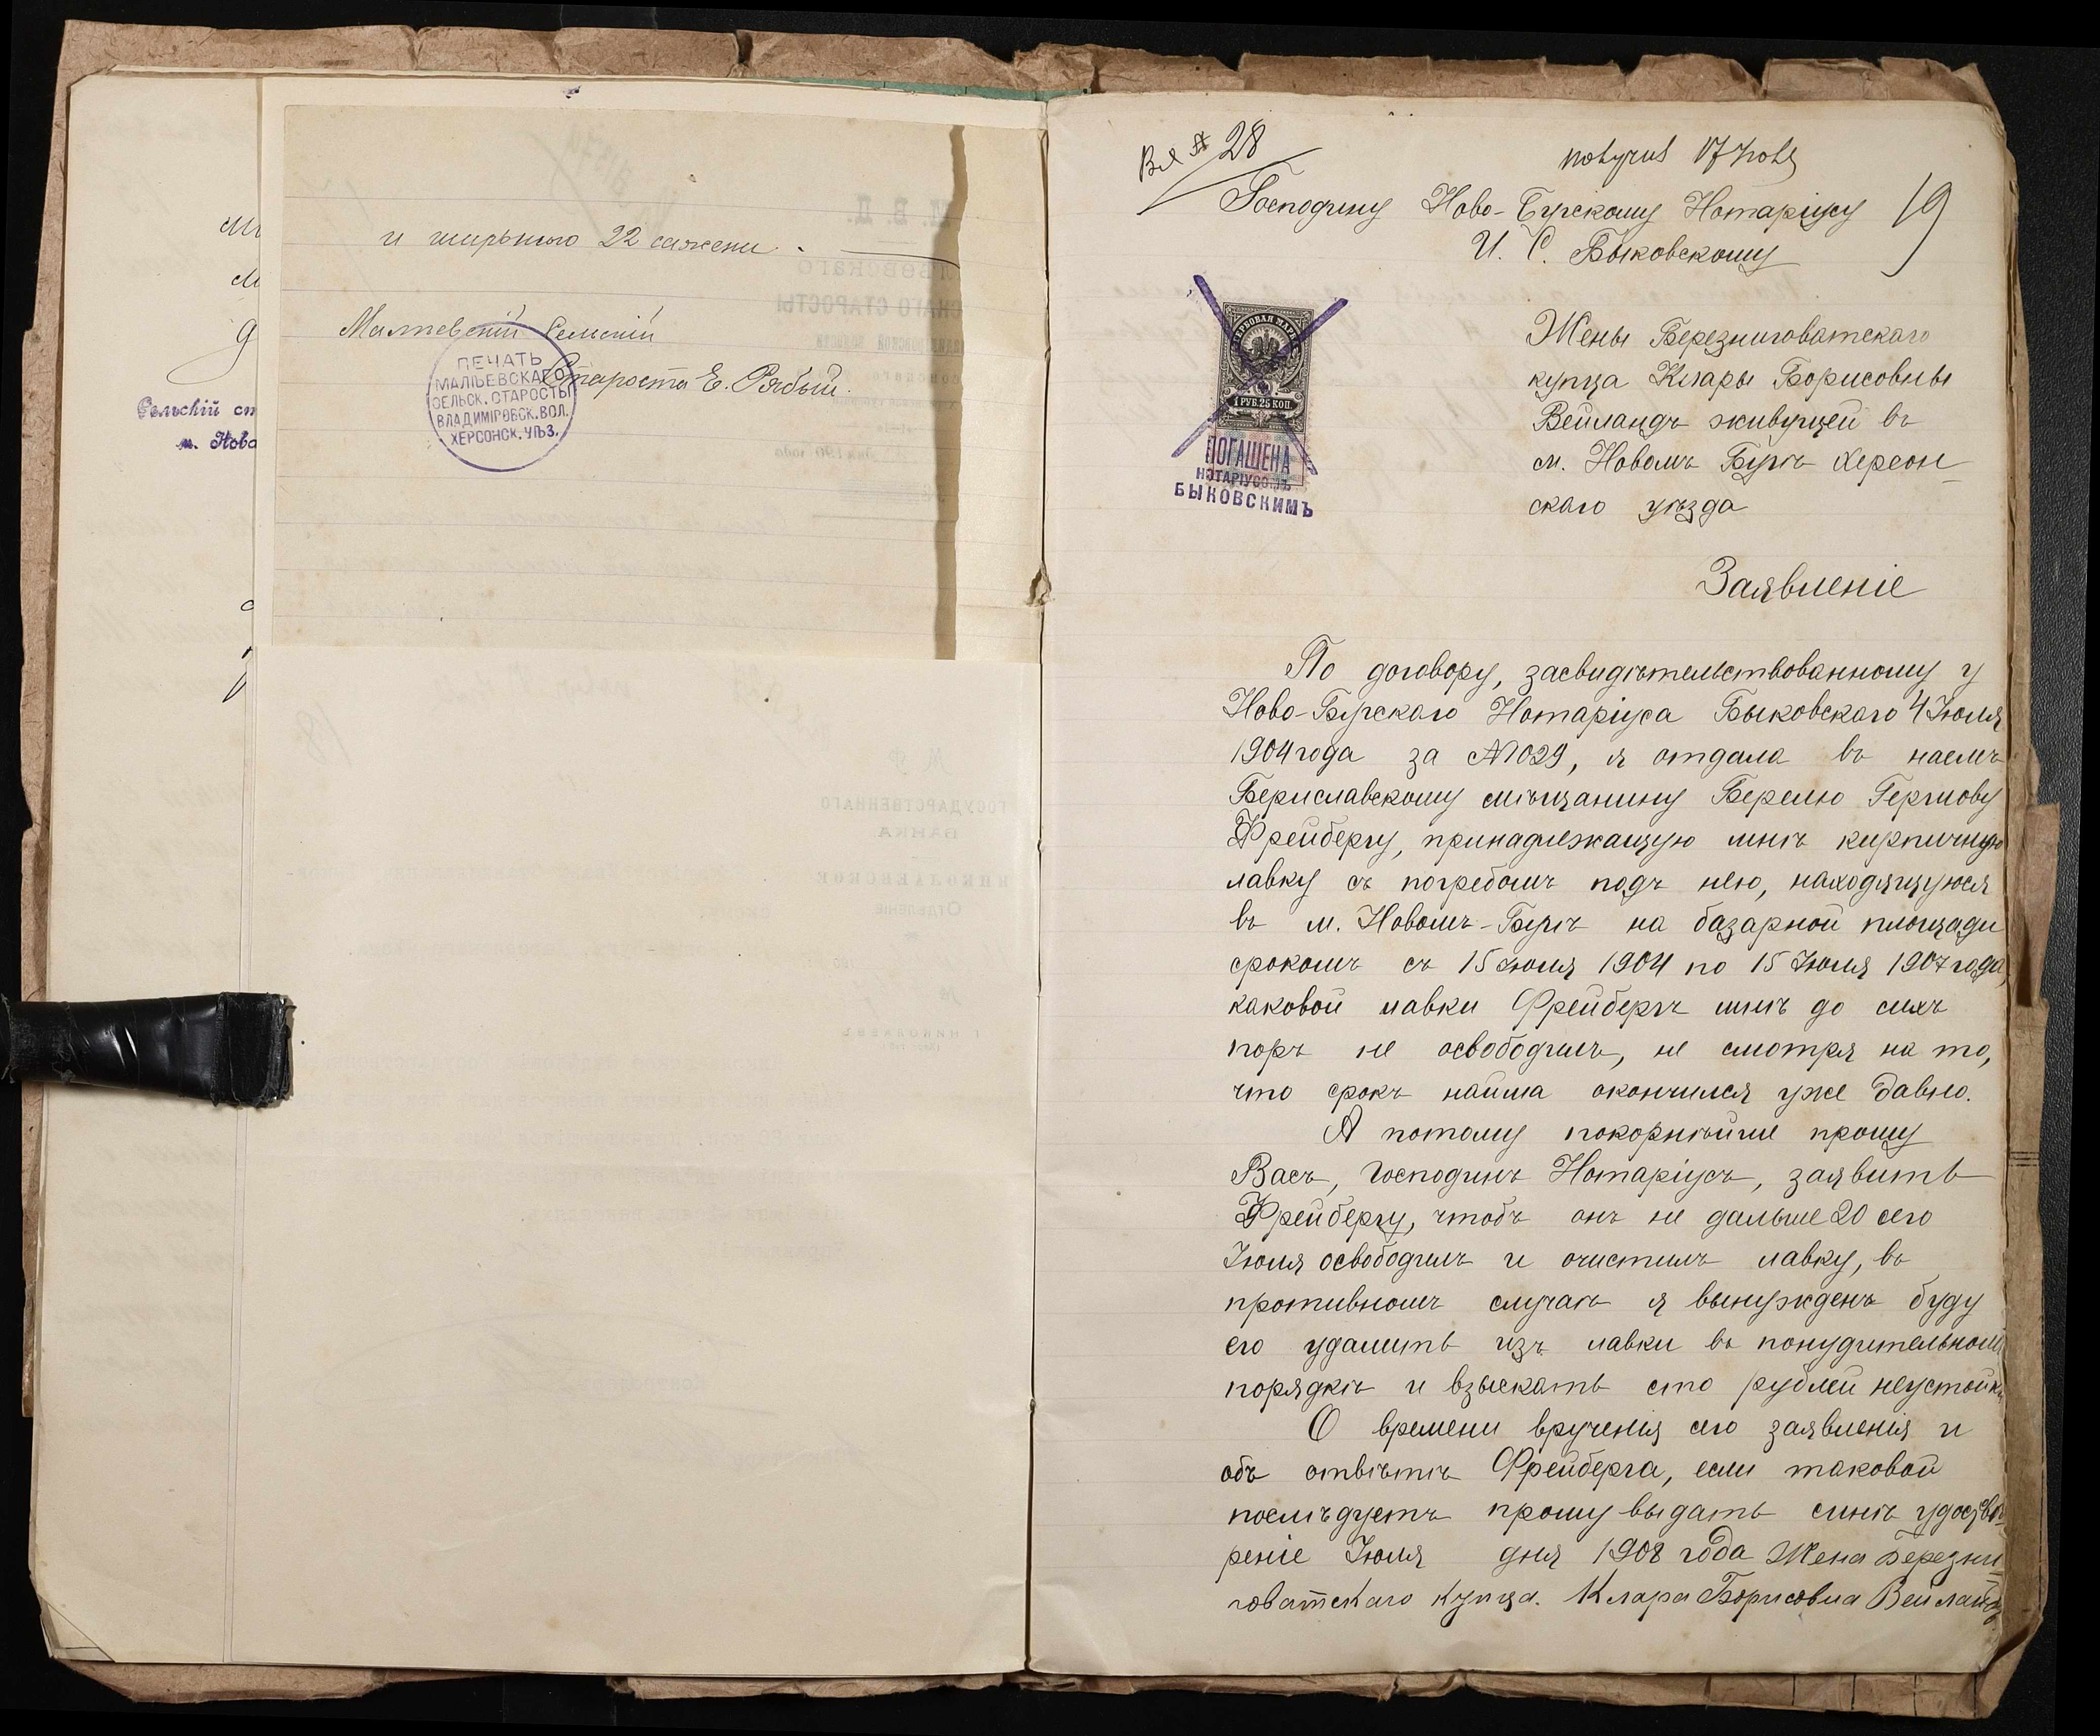 и ширьного 22 сажени.
Малѣевскій Сельскій
Староста Е. Рябый.
ПЕЧАТЬ
МАЛѢЕВСКАГО
СЕЛЬСК. СТАРОСТЫ
ВЛАДИМІРОВСК. ВОЛ.
ХЕРСОНСК. УѢЗ.
Сельскій ст
м. Ново
Вх № 28
19
Господину Ново-Бугскому Нотаріусу
И. С. Быковскому
ГЕРБОВАЯ МАРКА
1 РУБ. 25 КОП.
ПОГАШЕНА
НОТАРІУСОМЪ
БЫКОВСКИМЪ
Жены Березниговатскаго
купца Клары Борисовны
Вейландъ живущей въ
м. Новомъ Бугѣ Херсон-
скаго уѣзда
Заявленіе
По договору, засвидѣтельствованному у
Ново-Бугскаго Нотаріуса Быковскаго 4 Іюля
1904 года за №1029, я отдала въ наемъ
Бериславскому мѣщанину Берелю Герш­ову
Фрейбергу, принадлежащую мнѣ кирпичную
лавку съ погребомъ подъ нею, находящуюся
въ м. Новомъ-Бугѣ на базарной площади
срокомъ съ 15 Іюля 1904 по 15 Іюля 1907 года,
каковой лавки Фрейбергъ мнѣ до сихъ
поръ не освободилъ, не смотря на то,
что срокъ найма окончился уже давно.
А потому покорнѣйше прошу
Васъ, Господинъ Нотаріусъ, заявить
Фрейбергу, чтобъ онъ не дальше 20 сего
Іюля освободилъ и очистилъ лавку, въ
противномъ случаѣ я вынужденъ буду
его удалить изъ лавки въ понудительномъ
порядкѣ и взыскать сто рублей неустойки
О времени врученія сего заявленія и
объ отвѣтѣ Фрейберга, если таковой
послѣдуетъ прошу выдать мнѣ удостовѣ-
реніе Іюля дня 1908 года Жена Березни-
говатскаго купца. Клара Борисовна Вейландъ